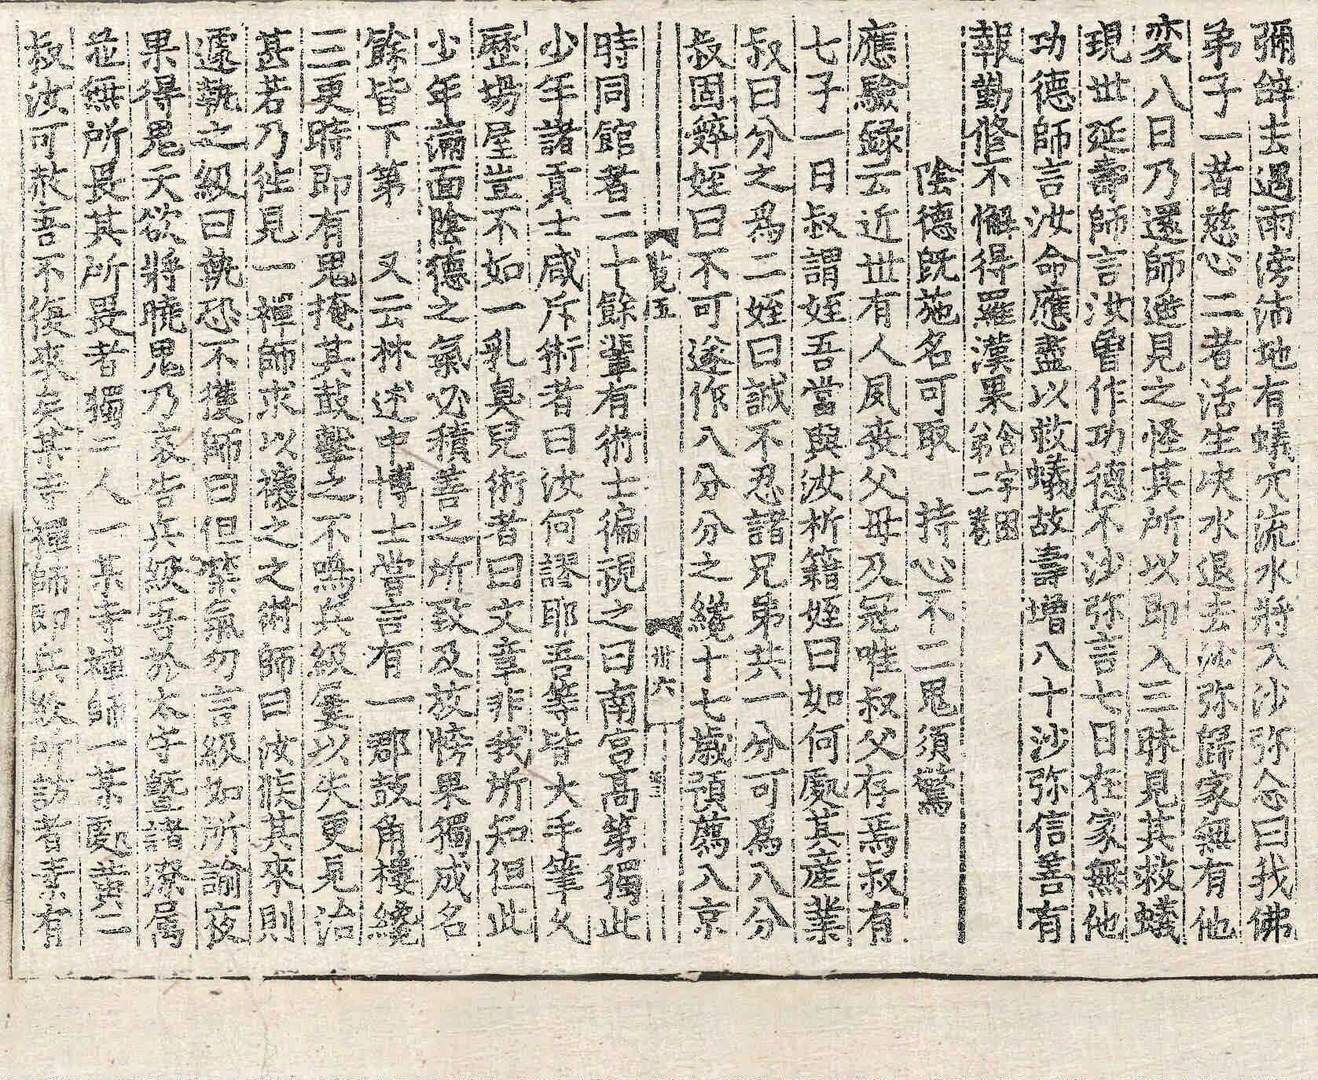 彌辞去遇雨滂沛地有蟻穴流水將入沙弥念曰我佛
弟子一者慈心二者活生决水退去沙弥歸家無有他
変八日乃還師遥見之怪其所以即入三昧見其救蟻
現世延壽師言汝曽作功德不沙弥言七日在家無他
功德師言汝命應盡以救蟻故壽增八十沙弥信善有
報勤修不懈得羅漢果
舎字函
八第二巻
陰德既施名可取　持心不二鬼須驚
應驗録云近世有人夙喪父母及冠唯叔父存焉叔有
七子一日叔謂姪吾當與汝析籍姪曰如何處其産業
叔曰分之爲二姪曰誠不忍諸兄弟共一分可爲八分
叔固辝姪曰不可遂作八分分之纔十七歳預薦入京
覧五　卅六
時同館者二十餘軰有術士徧視之曰南宫髙第獨此
少年諸貢士咸斥術者曰汝何謬耶吾等皆大手筆乆
歷場屋豈不如一乳臭兒術者曰文章非我所知但此
少年滿面陰德之氣必積善之所致及放榜果獨成名
餘皆下第　又云林述中博士甞言有一郡鼓角樓纔
三更時即有鬼掩其鼓擊之不鳴兵級屢以失更見治
甚若乃徃見一禅師求以禳之之術師曰汝候其來則
遽執之級曰執恐不獲師曰但禁氣勿言級如所諭夜
果得鬼天欲將曉鬼乃哀告兵級吾於太守曁諸寮属
並無所畏其所畏者獨三人一某寺禅師一某處黄二
叔汝可赦吾不復來矣某寺禅師即兵級所訪者素有